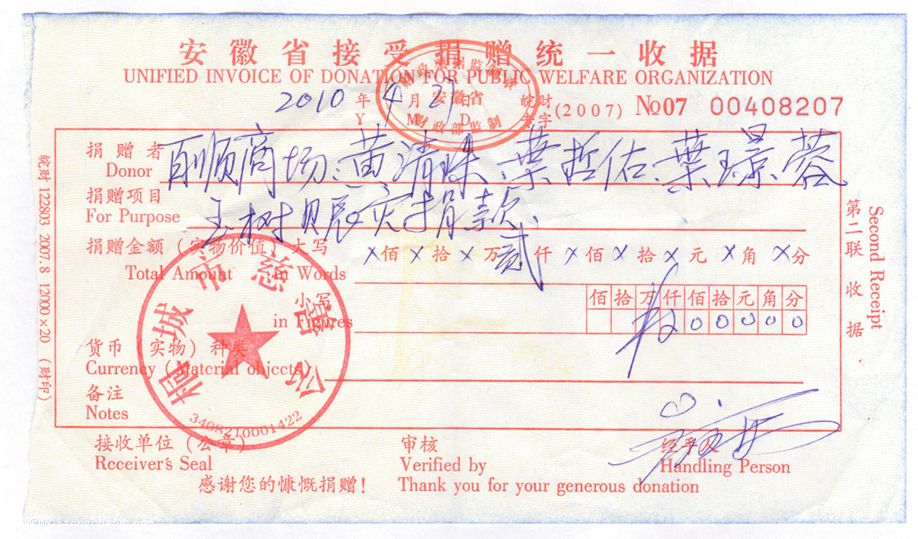 安徽省接受捐赠统一收据
UNIFIED INVOICE OF DONATION FOR PUBLIC WELFARE ORGANIZATION
2010 年 4 月 27 日 皖财 字 (2007) №07 00408207
Y M D
安徽省
财政部监制
捐赠者 百顺商场、黄清珠、叶哲佑、叶璟蓉
Donor
捐赠项目 玉树赈灾捐款
For Purpose
捐赠金额（实物价值）大写 ×佰×拾×万贰仟×佰×拾×元×角×分
Total Amount In Words
小写 佰拾万仟佰拾元角分
in Figures 00000
货币（实物）种类
Currency (Material objects)
备注
Notes
接收单位（公章） 审核 经手人
Receiver's Seal Verified by Handling Person
感谢您的慷慨捐赠！ Thank you for your generous donation
桐城市慈善协会
3408210001422
皖财 122803 2007.8 12000×20 （财印）
第二联 收据
Second Receipt